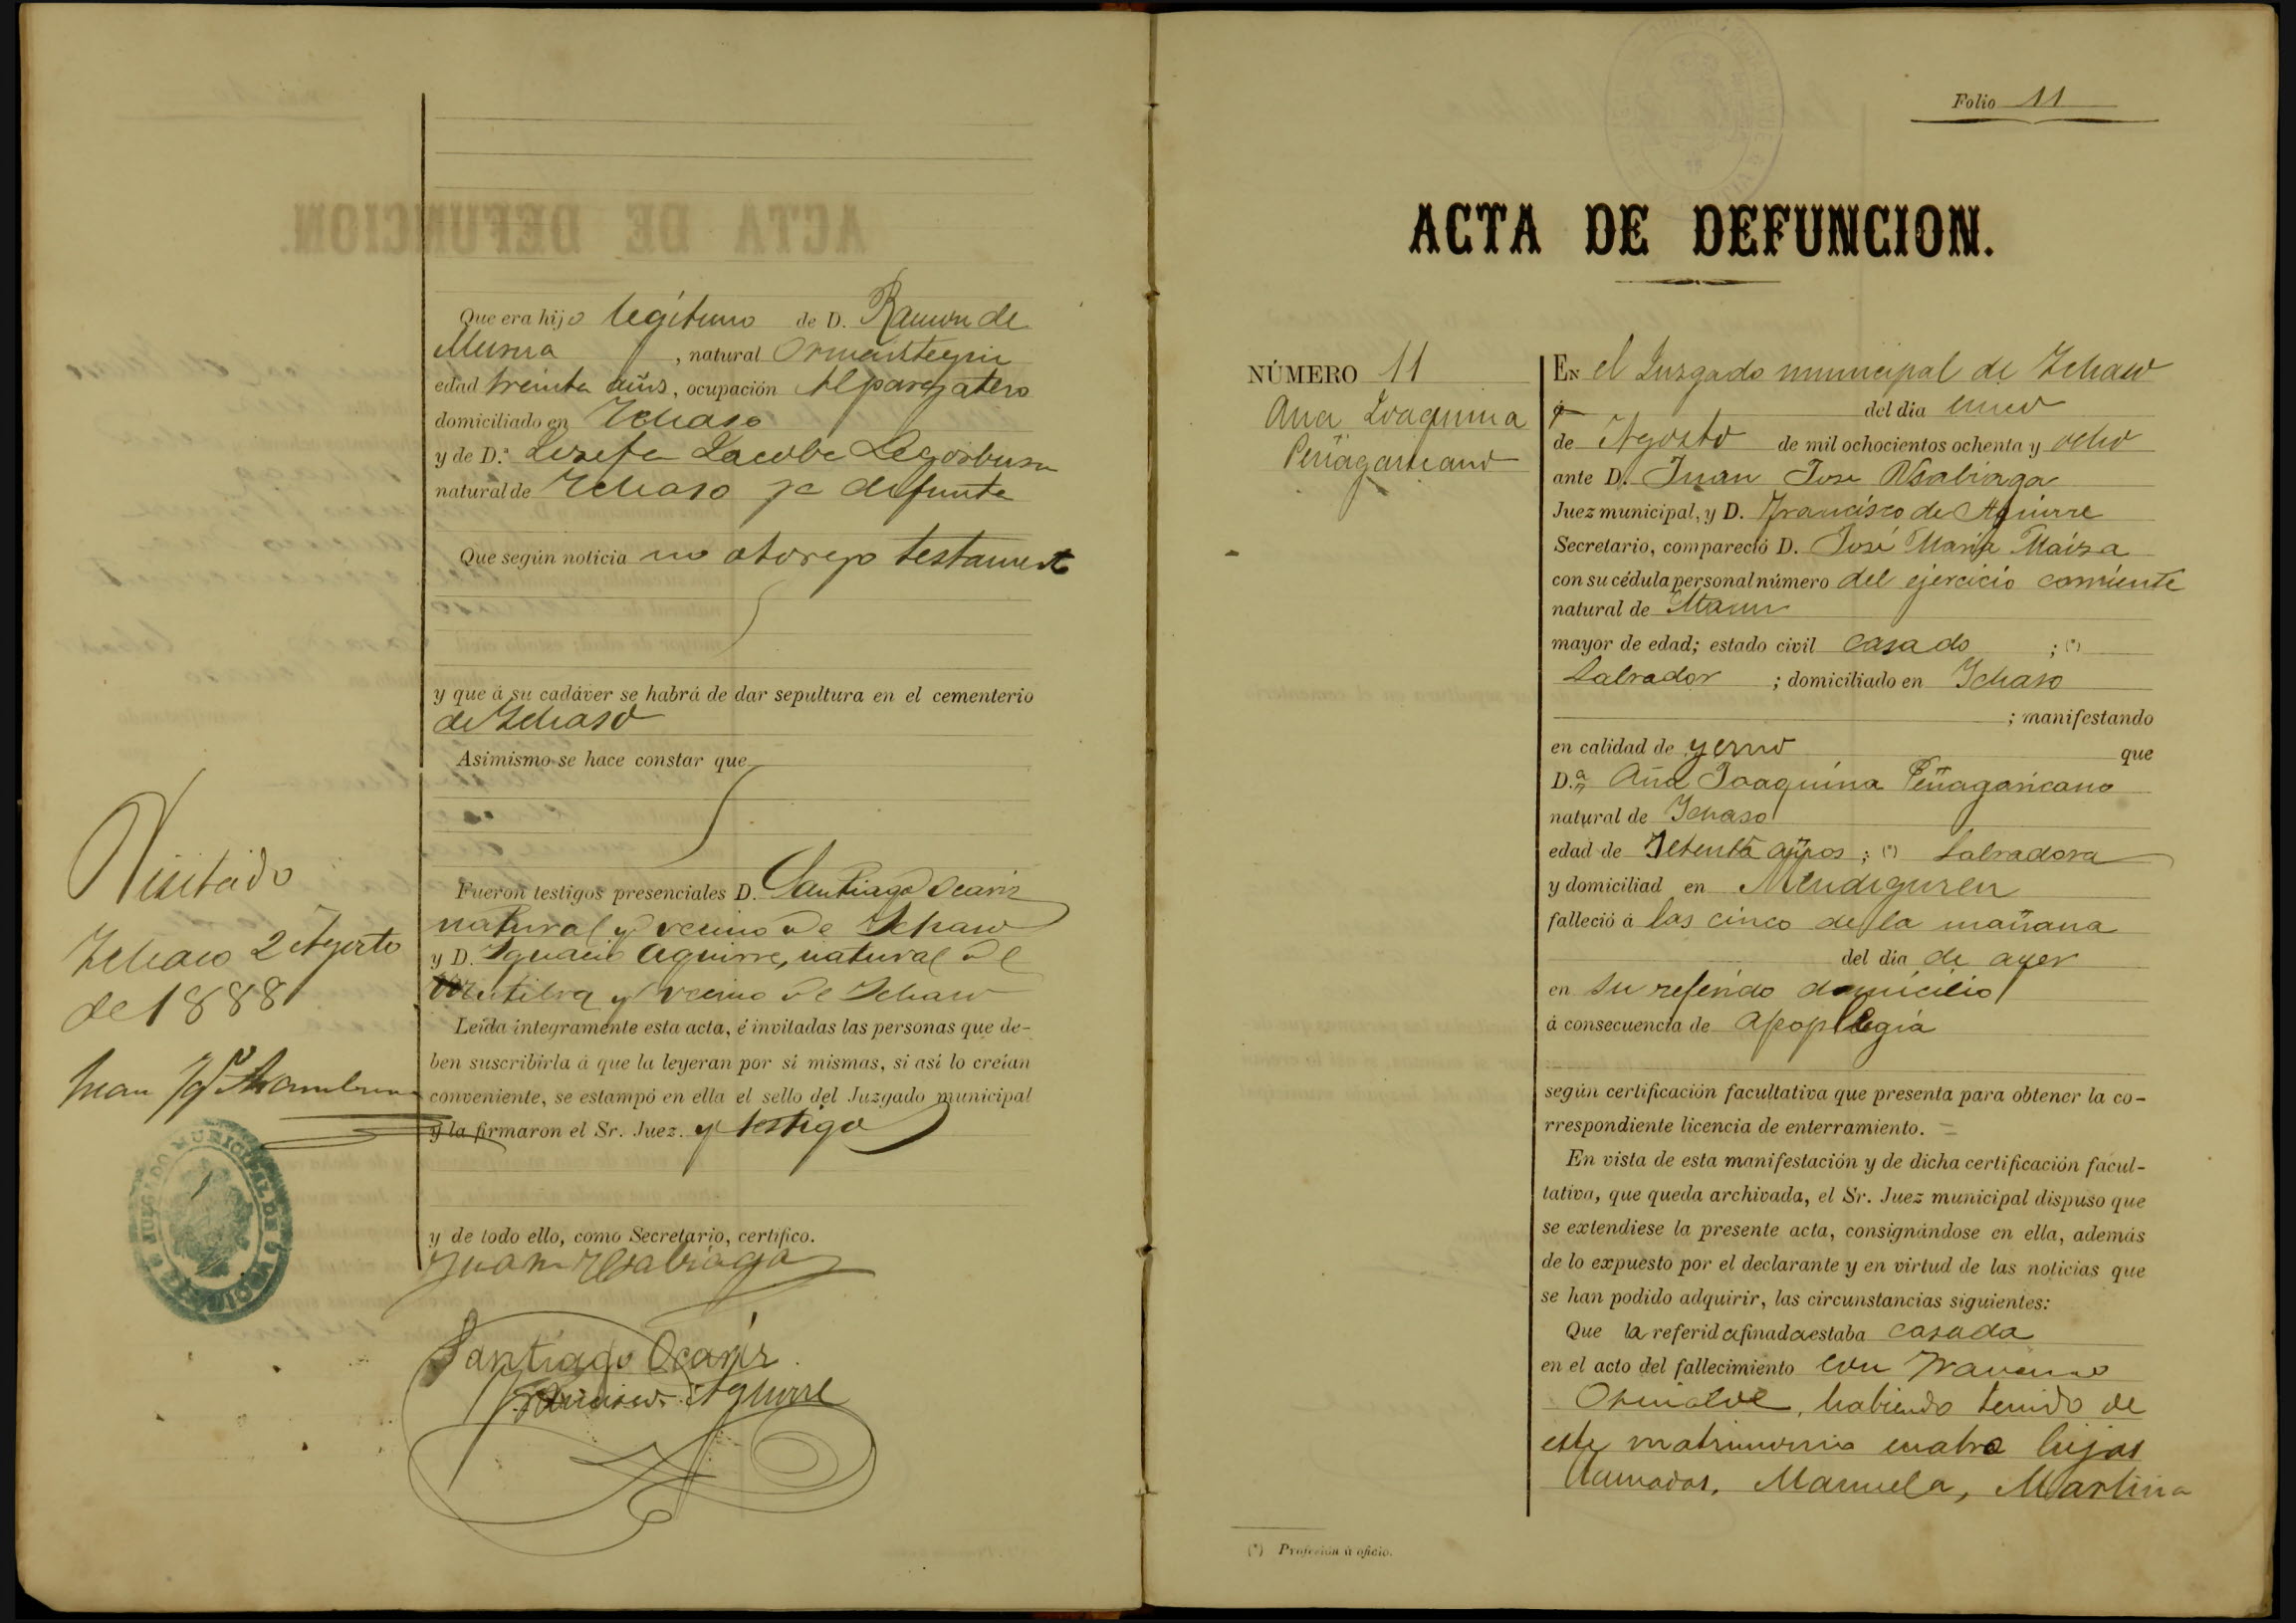 Que era hijo legítimo de D. Ramon de
Murua, natural Ormaiztegui
edad treinta años, ocupación Alpargatero
domiciliado en Ichaso
y de D.ª Josefa Jacoba Legorburu
natural de Ichaso ya difunta
Que según noticia no otorgo testament
y que á su cadáver se habrá de dar sepultura en el cementerio
de Ichaso
Asimismo se hace constar que
Fueron testigos presenciales D. Santiago Ocariz
natural y vecino de Ichaso
y D. Ignacio Aguirre, natural de
y vecino de Ichaso
Leída íntegramente esta acta, é invitadas las personas que de-
ben suscribirla á que la leyeran por sí mismas, si así lo creían
conveniente, se estampó en ella el sello del Juzgado municipal
y la firmaron el Sr. Juez. y testigo
y de todo ello, como Secretario, certifico.
Juan Usabiaga
Santiago Ocariz
Francisco Aguirre
Visitado
Ichaso 2 Agosto
de 1888
Juan
Folio 11
ACTA DE DEFUNCION.
NÚMERO 11
Ana Joaquina
Peñagaricano
EN el Juzgado municipal de Ichaso
á del dia cinco
de Agosto de mil ochocientos ochenta y ocho
ante D. Juan Jose Usabiaga
Juez municipal, y D. Francisco de Aguirre
Secretario, compareció D. José Maria Maiza
con su cédula personal número del ejercicio corriente
natural de Ataun
mayor de edad; estado civil casado ; (*)
Labrador ; domiciliado en Ichaso
; manifestando
en calidad de yerno que
D.ª Ana Joaquina Peñagaricano
natural de Ichaso
edad de Setenta años ; (*) Labradora
y domiciliad en Mendiguren
falleció á las cinco de la mañana
del dia de ayer
en su referido domicilio
á consecuencia de apoplegia
según certificación facultativa que presenta para obtener la co-
rrespondiente licencia de enterramiento.
En vista de esta manifestación y de dicha certificación facul-
tativa, que queda archivada, el Sr. Juez municipal dispuso que
se extendiese la presente acta, consignándose en ella, además
de lo expuesto por el declarante y en virtud de las noticias que
se han podido adquirir, las circunstancias siguientes:
Que la referida finada estaba casada
en el acto del fallecimiento con
habiendo tenido de
este matrimonio cuatro hijas
llamadas, Manuela, Martina
(*) Profesión ú oficio.